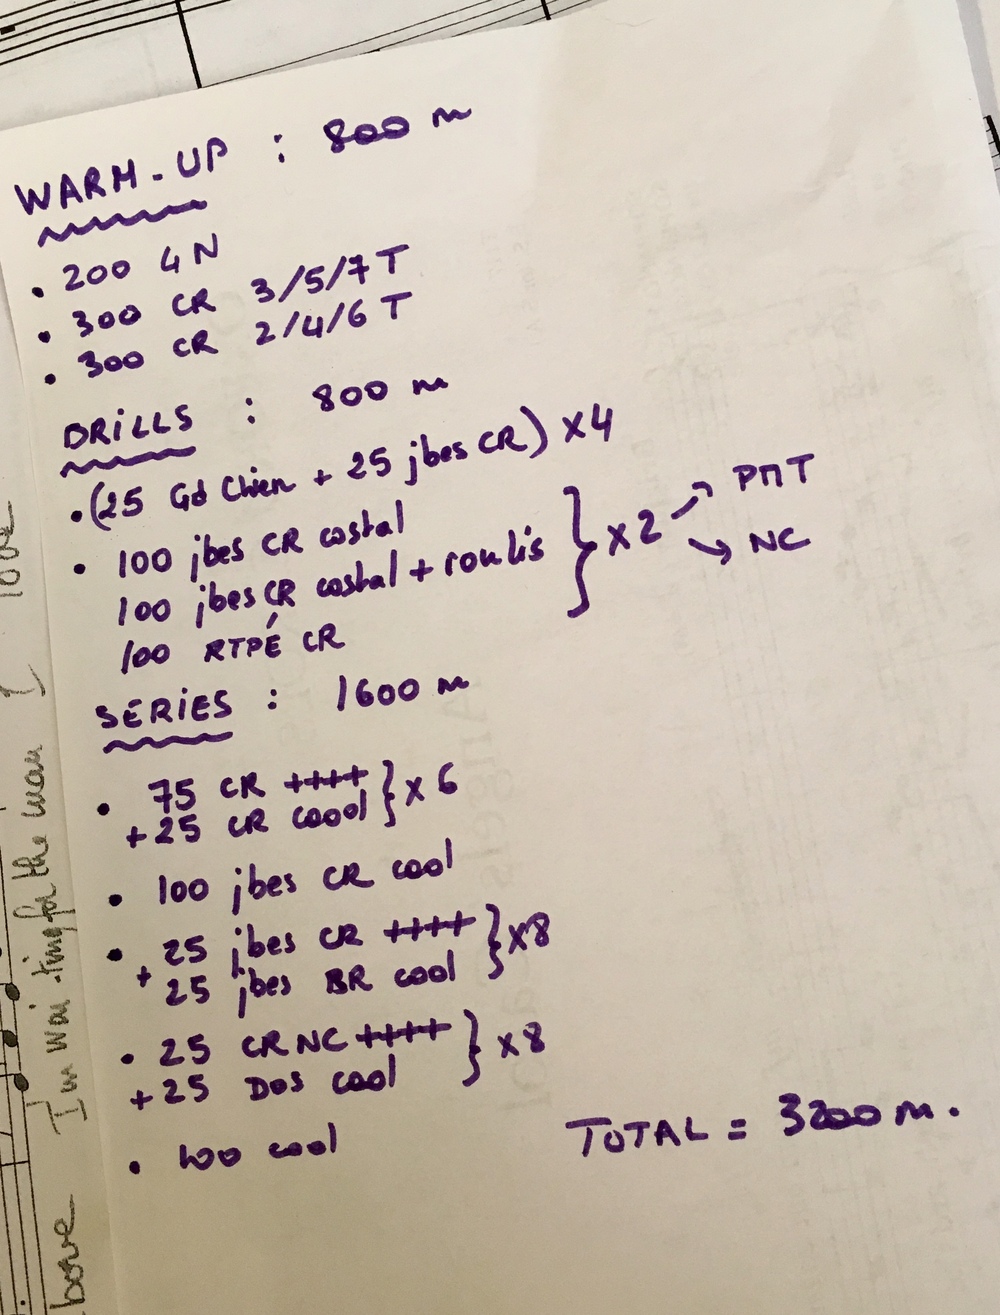 WARM-UP : 800 m
• 200 4N
• 300 CR 3/5/7 T
• 300 CR 2/4/6 T
DRILLS : 800 m
• (25 Gd Chien + 25 jbes CR) x4
• 100 jbes CR costal
100 jbes CR costal + roulis
} x2
PMT
NC
100 RTPÉ CR
SERIES : 1600 m
• 75 CR ++++
+ 25 CR coool
} x 6
• 100 jbes CR cool
• 25 jbes CR ++++
+ 25 jbes BR cool
} x8
• 25 CR NC ++++
+ 25 DOS cool
} x8
• 100 cool
TOTAL = 3200 m.
I'm wai-ting for the man
bove